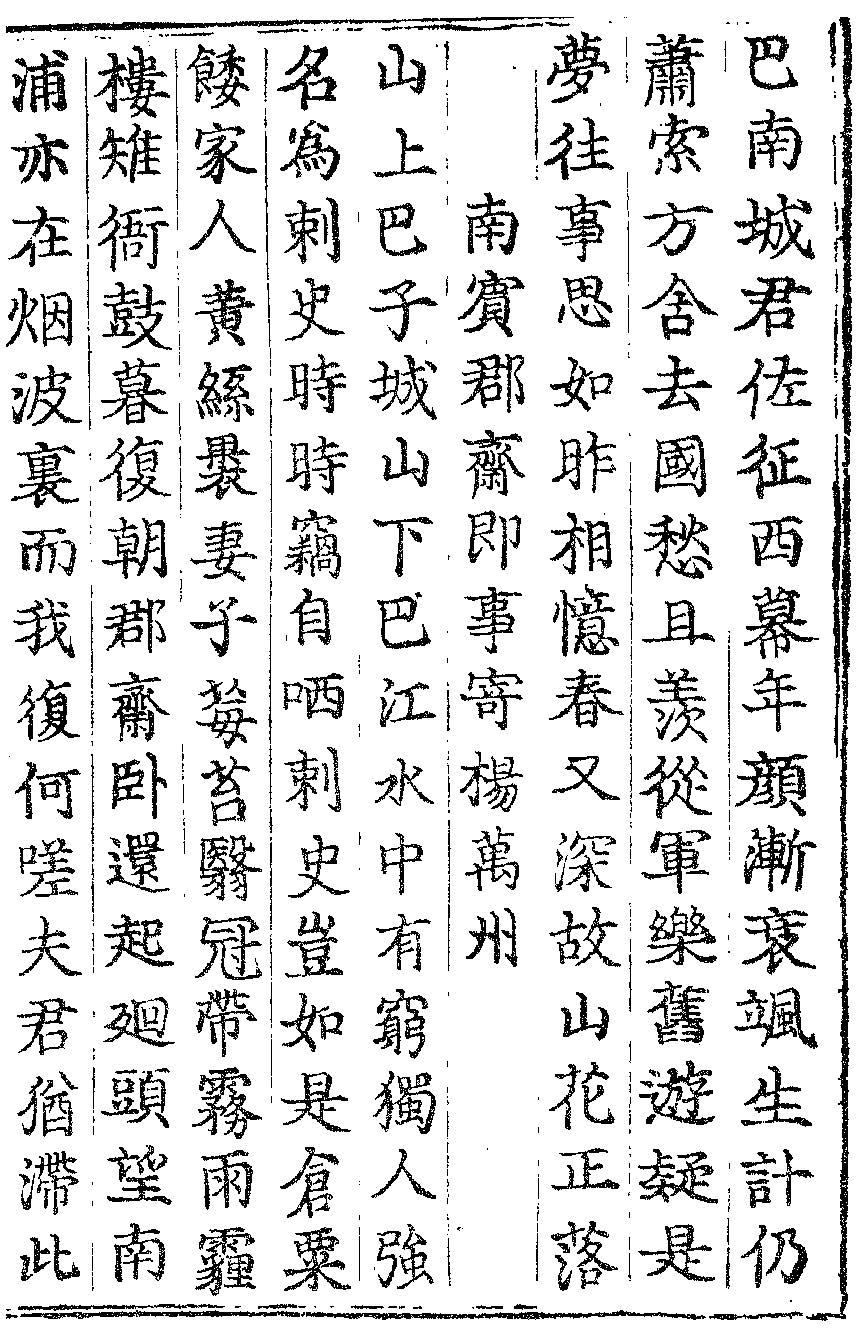 巴南城君佐征西幕年顔漸衰颯生計仍
蕭索方舍去國愁且羨從軍樂舊遊疑是
夢往事思如昨相憶春又深故山花正落
南賓郡齋即事寄楊萬州
山上巴子城山下巴江水中有窮獨人強
名爲刺史時時竊自哂刺史豈如是倉粟
餧家人黄縑裹妻子莓苔翳冠帶霧雨霾
樓雉衙鼓暮復朝郡齋臥還起廻頭望南
浦亦在烟波裏而我復何嗟夫君猶滯此